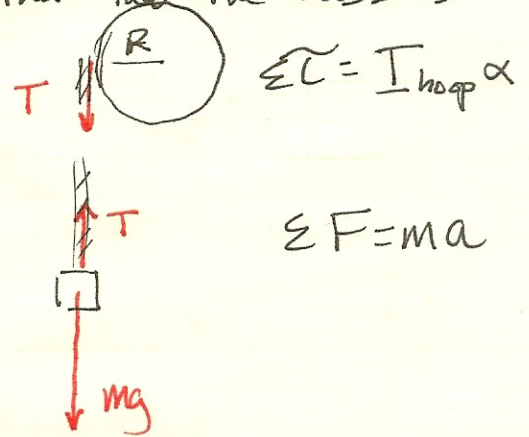 R
T
Στ = I hoop α
T
ΣF = ma
mg